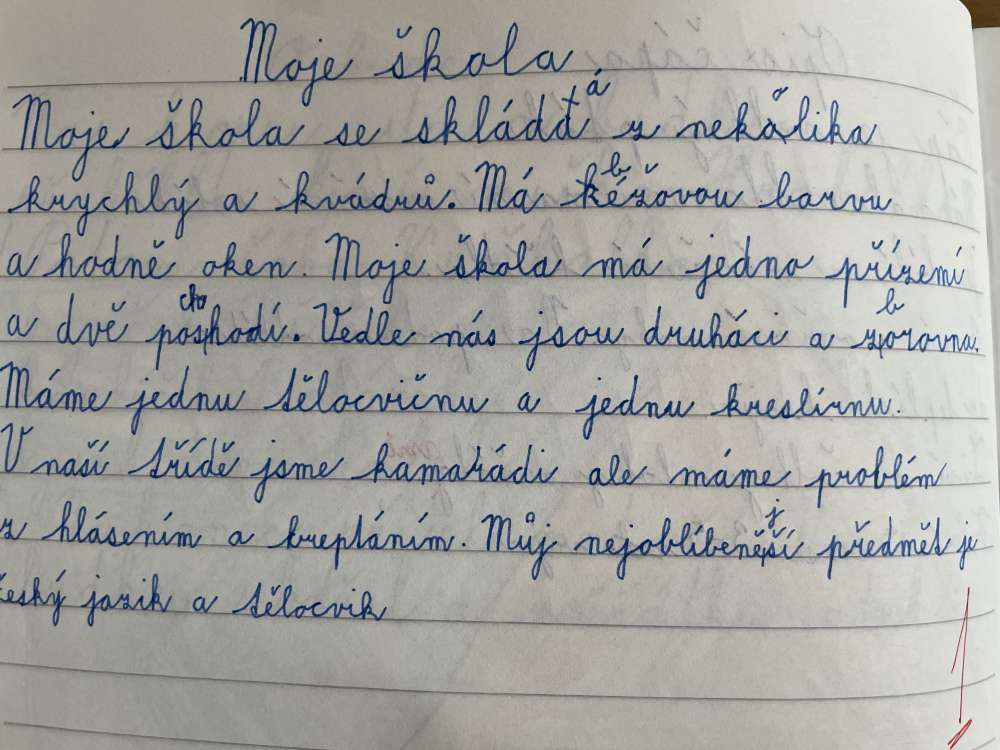 Moje škola
Moje škola se skládá z nekolika
krychlý a kvádrů. Má béžovou barvu
a hodně oken. Moje škola má jedno přízemí
a dvě poschodí. Vedle nás jsou druháci a zborovna.
Máme jednu tělocvičnu a jednu kreslírnu.
V naší třídě jsme kamarádi ale máme problém
z hlásením a kreptáním. Můj nejoblíbenější předmět je
český jazik a tělocvik
1